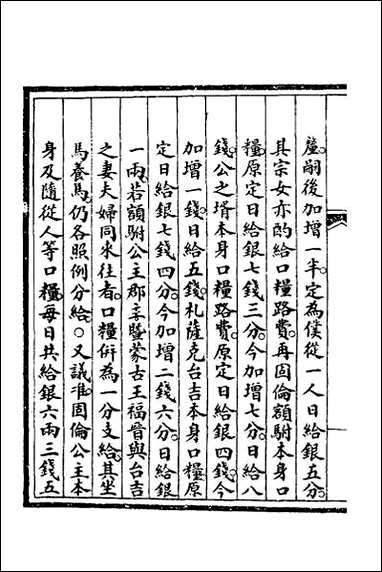 釐。嗣後加增一半。定為僕從一人日給銀五分。
其宗女亦酌給口糧路費。再固倫額駙本身口
糧。原定日給銀七錢三分。今加增七分。日給八
錢。公之壻本身口糧路費。原定日給銀四錢。今
加增一錢。日給五錢。札薩克台吉本身口糧。原
定日給銀七錢四分。今加增二錢六分。日給銀
一兩。若額駙公主郡主暨蒙古王福晉與台吉
之妻。夫婦同來往者。口糧併為一分支給。其坐
馬養馬。仍各照例分給。○又議准。固倫公主本
身及隨從人等口糧。每日共給銀六兩三錢五